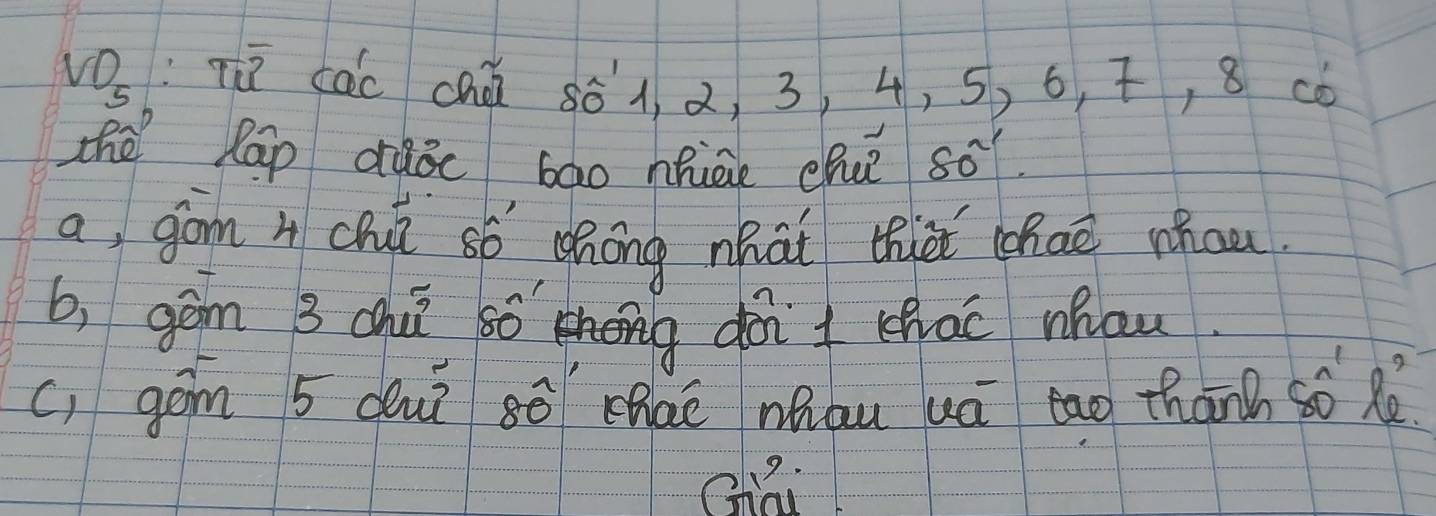 VD5: Từ các chữ số 1, 2, 3, 4, 5, 6, 7, 8 có
thể lập được bao nhiêu chữ số.
a, gồm 4 chữ số không nhất thiết khác nhau.
b, gồm 3 chữ số không đôi 1 khác nhau.
c, gồm 5 chữ số khác nhau và tạo thành số lẻ.
Giải